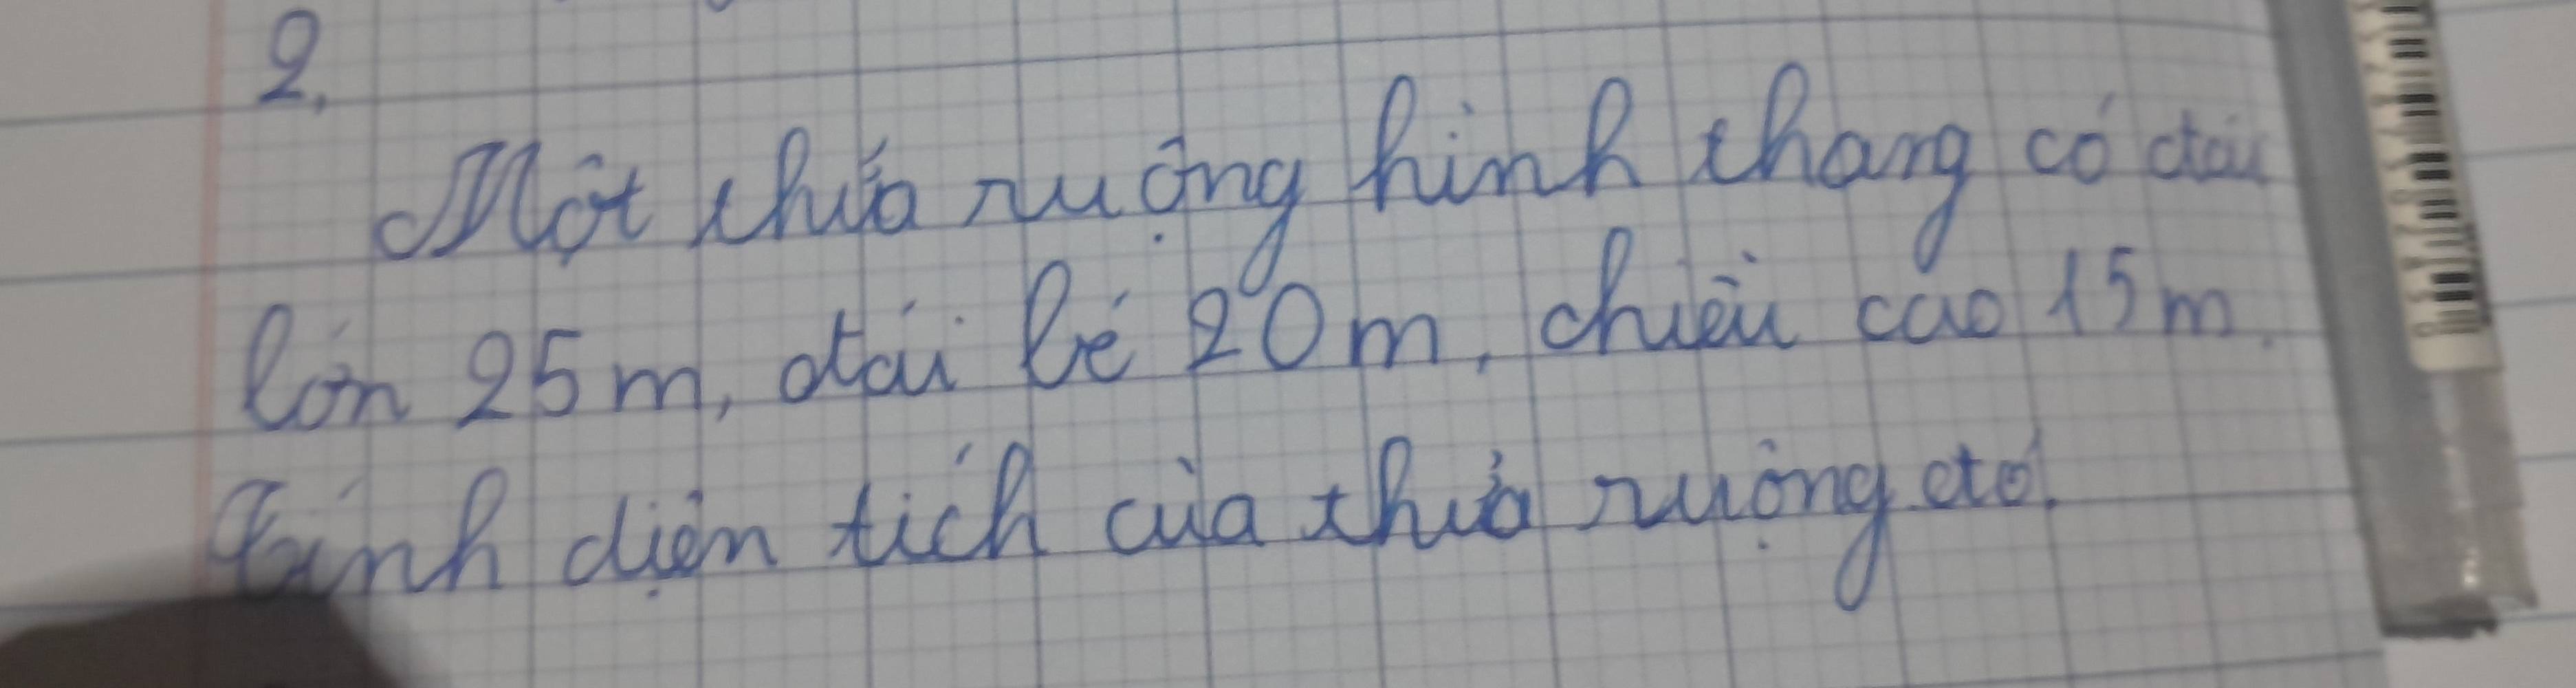 2.
Một thửa ruộng hình thang có đái
lớn 25 m, đái bé 20 m, chiều cao 15 m.
Tính diện tích của thửa ruộng đó.